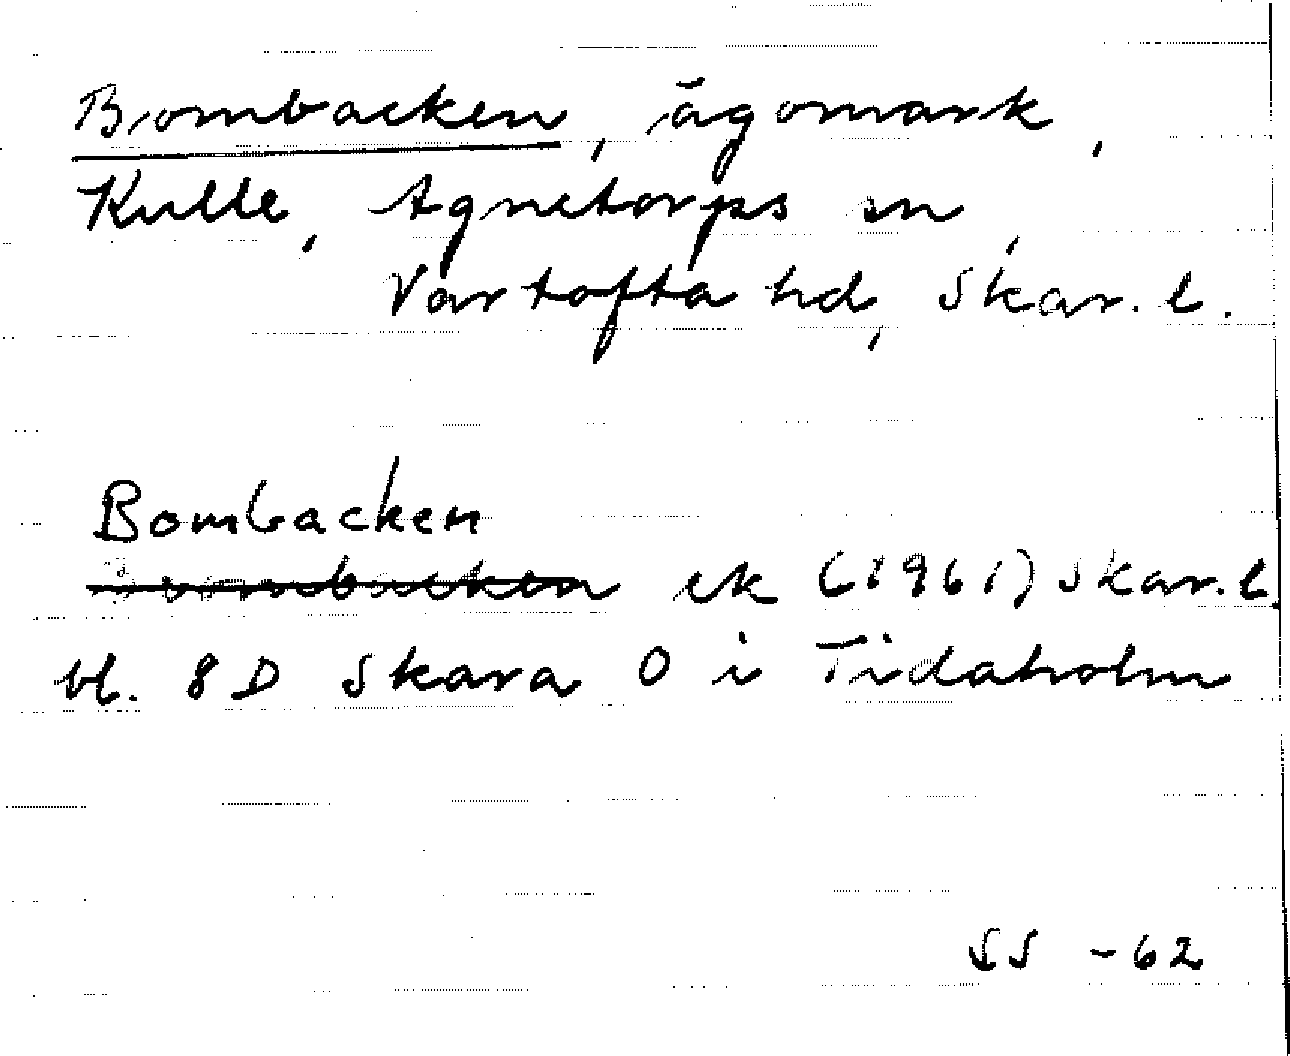 Bombacken, ägomark,
Kulle, Agnetorps sn,
Vartofta hd, Skar. l.
Bombacken
ek (1961) Skar. l.
bl. 8 D Skara O i Tidaholm
SS -62